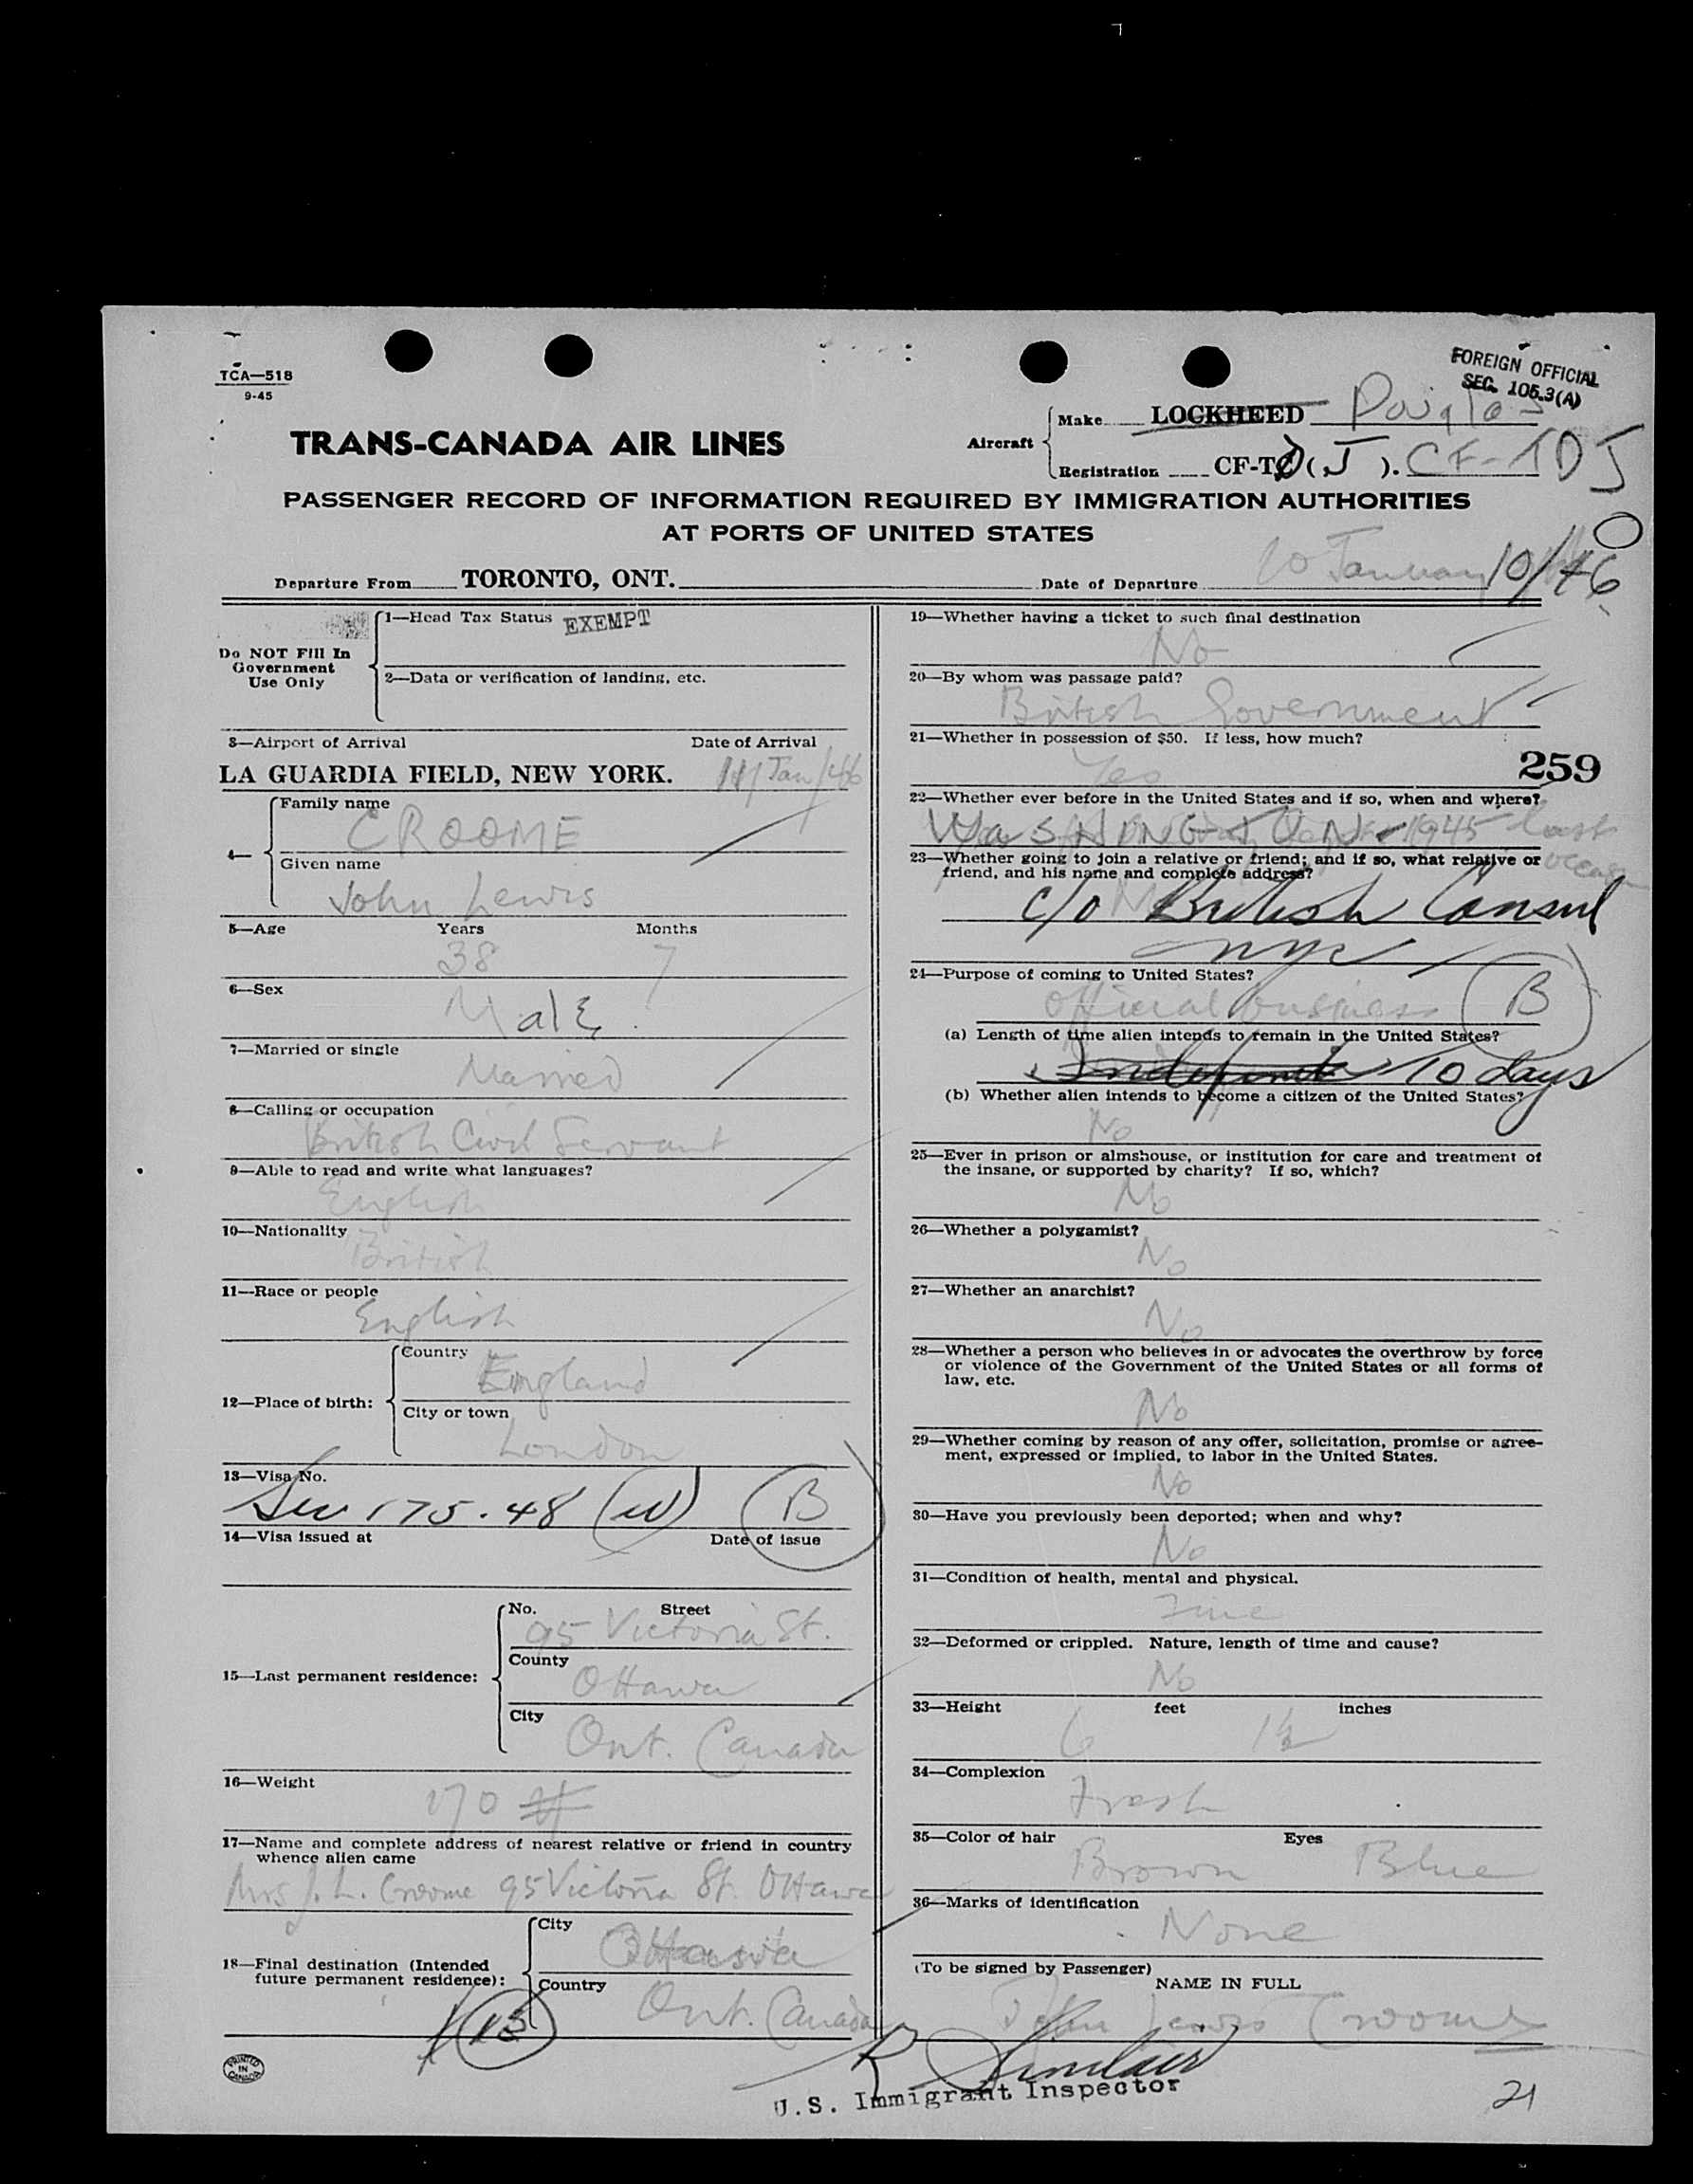 TCA—518
9-45
FOREIGN OFFICIAL
SEC. 105.3(A)
TRANS-CANADA AIR LINES
Aircraft
Make LOCKHEED Douglas
Registration CF-TD (J). CF-TDJ
PASSENGER RECORD OF INFORMATION REQUIRED BY IMMIGRATION AUTHORITIES
AT PORTS OF UNITED STATES
Departure From TORONTO, ONT. Date of Departure 10 January 10/46
Do NOT Fill In
Government
Use Only
1—Head Tax Status EXEMPT
2—Data or verification of landing, etc.
3—Airport of Arrival Date of Arrival
LA GUARDIA FIELD, NEW YORK. Jan/46
4—
Family name
CROOME
Given name
John Lewis
5—Age Years Months
38 7
6—Sex
Male
7—Married or single
Married
8—Calling or occupation
British Civil Servant
9—Able to read and write what languages?
English
10—Nationality
British
11—Race or people
English
12—Place of birth:
Country
England
City or town
London
13—Visa No.
Sec 175.48 (w) B
14—Visa issued at Date of issue
15—Last permanent residence:
No. Street
95 Victoria St.
County
Ottawa
City
Ont. Canada
16—Weight
170 #
17—Name and complete address of nearest relative or friend in country
whence alien came
Mrs J. L. Croome 95 Victoria St. Ottawa
18—Final destination (Intended
future permanent residence):
City
Ottawa
Country
Ont. Canada
PRINTED
IN
CANADA
19—Whether having a ticket to such final destination
No
20—By whom was passage paid?
British Government
21—Whether in possession of $50. If less, how much?
Yes
259
22—Whether ever before in the United States and if so, when and where?
WASHINGTON 1945 last
occasion
23—Whether going to join a relative or friend; and if so, what relative or
friend, and his name and complete address?
c/o British Consul
NYC
24—Purpose of coming to United States?
official business B
(a) Length of time alien intends to remain in the United States?
Indefinite 10 days
(b) Whether alien intends to become a citizen of the United States?
No
25—Ever in prison or almshouse, or institution for care and treatment of
the insane, or supported by charity? If so, which?
No
26—Whether a polygamist?
No
27—Whether an anarchist?
No
28—Whether a person who believes in or advocates the overthrow by force
or violence of the Government of the United States or all forms of
law, etc.
No
29—Whether coming by reason of any offer, solicitation, promise or agree-
ment, expressed or implied, to labor in the United States.
No
30—Have you previously been deported; when and why?
No
31—Condition of health, mental and physical.
Fine
32—Deformed or crippled. Nature, length of time and cause?
No
33—Height feet inches
6 1½
34—Complexion
Fresh
35—Color of hair Eyes
Brown Blue
36—Marks of identification
None
(To be signed by Passenger)
NAME IN FULL
John Lewis Croome
R Sinclair
U.S. Immigrant Inspector
21